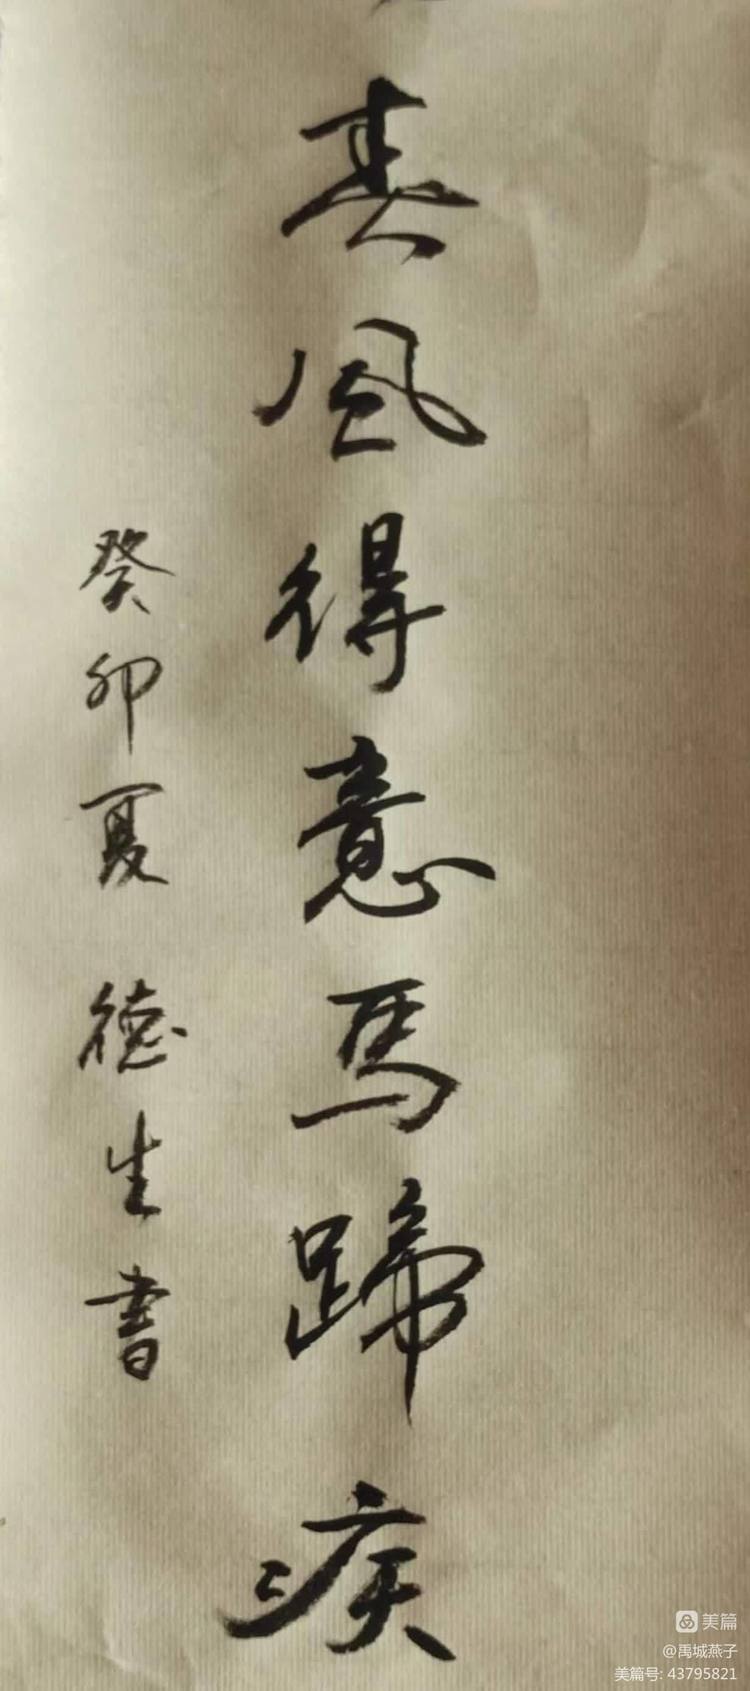 春风得意马蹄疾
癸卯夏 德生书
美篇
@禹城燕子
美篇号: 43795821